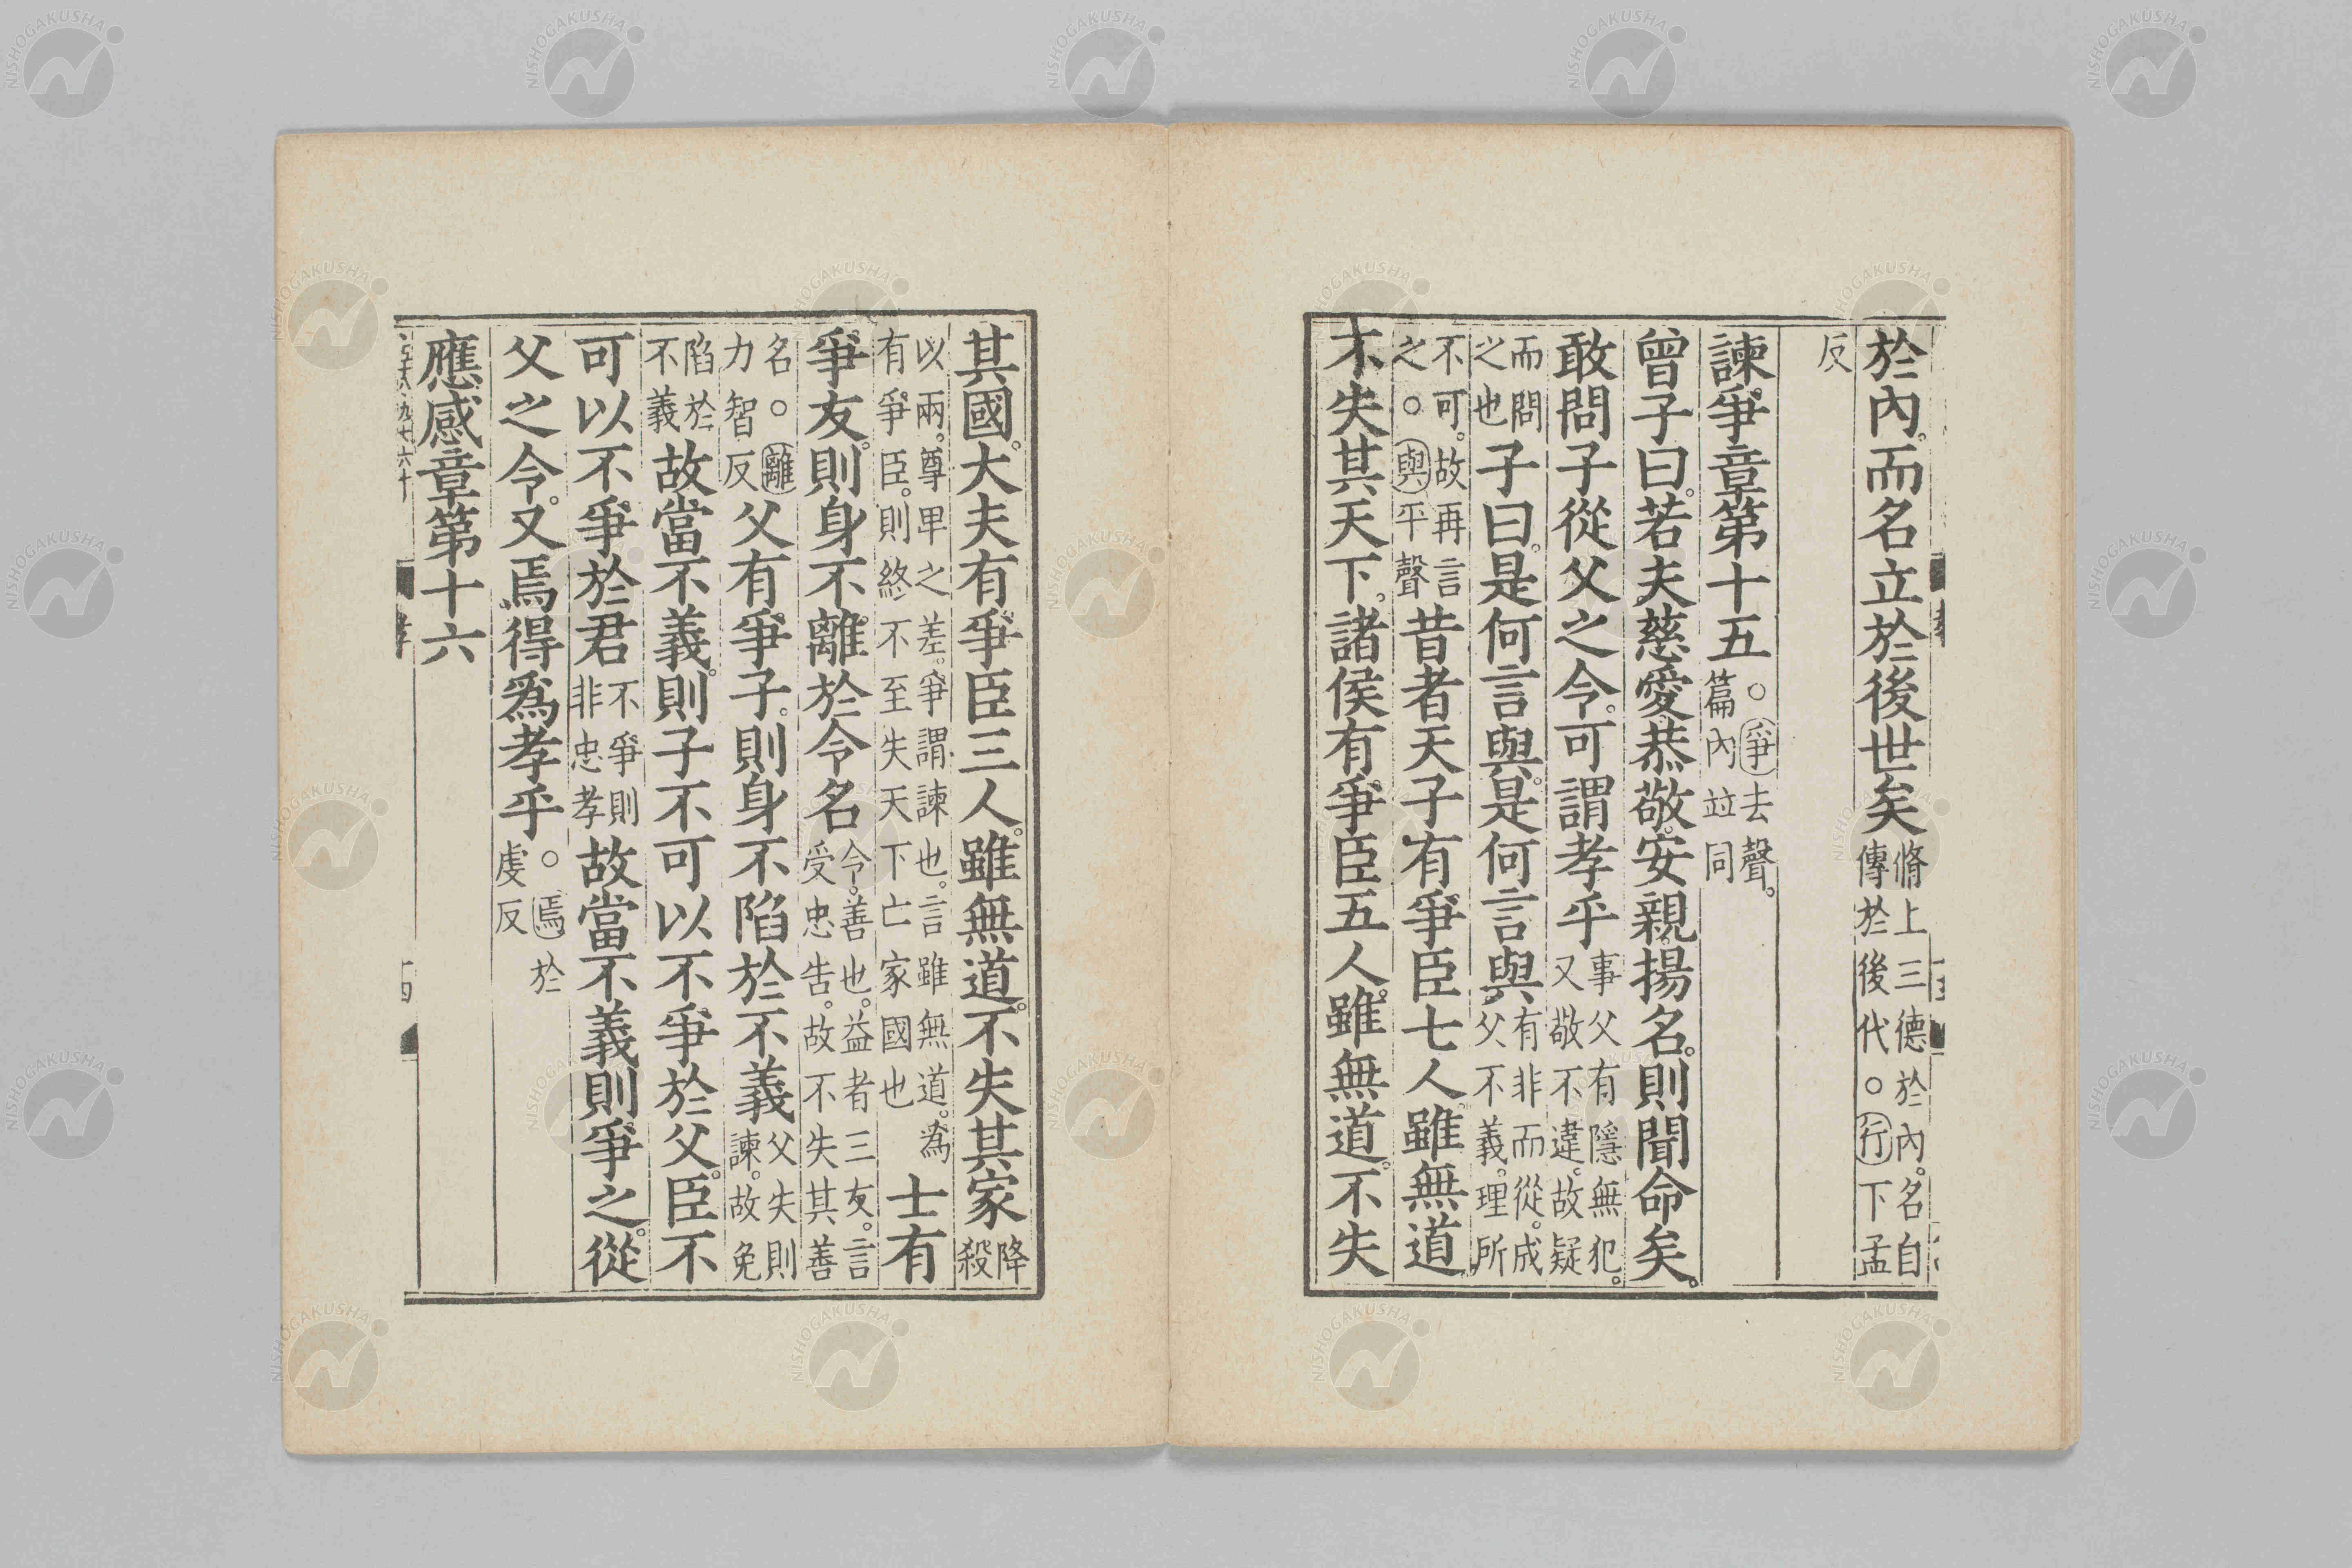 於內。而名立於後世矣脩上三德於內。名自傳於後代。○行下孟
反
諫爭章第十五○爭去聲。篇內竝同
曾子曰。若夫慈愛恭敬。安親。揚名。則聞命矣。
敢問子從父之令。可謂孝乎事父有隱無犯。又敬不違。故疑
而問之也子曰。是何言與。是何言與。有非而從。成父不義。理所
不可。故再言之。○與平聲昔者天子有爭臣七人。雖無道
不失其天下。諸侯有爭臣五人。雖無道。不失
其國。大夫有爭臣三人。雖無道。不失其家降殺
以兩。尊卑之差。爭謂諫也。言雖無道。為有爭臣。則終不至失天下亡家國也士有
爭友。則身不離於令名令。善也。益者三友。言受忠告。故不失其善
名。○離力智反父有爭子。則身不陷於不義父失則諫。故免
陷於不義故當不義。則子不可以不爭於父。臣不
可以不爭於君不爭則非忠孝故當不義則爭之。從
父之令。又焉得爲孝乎。○焉於虔反
應感章第十六
NISHOGAKUSHA